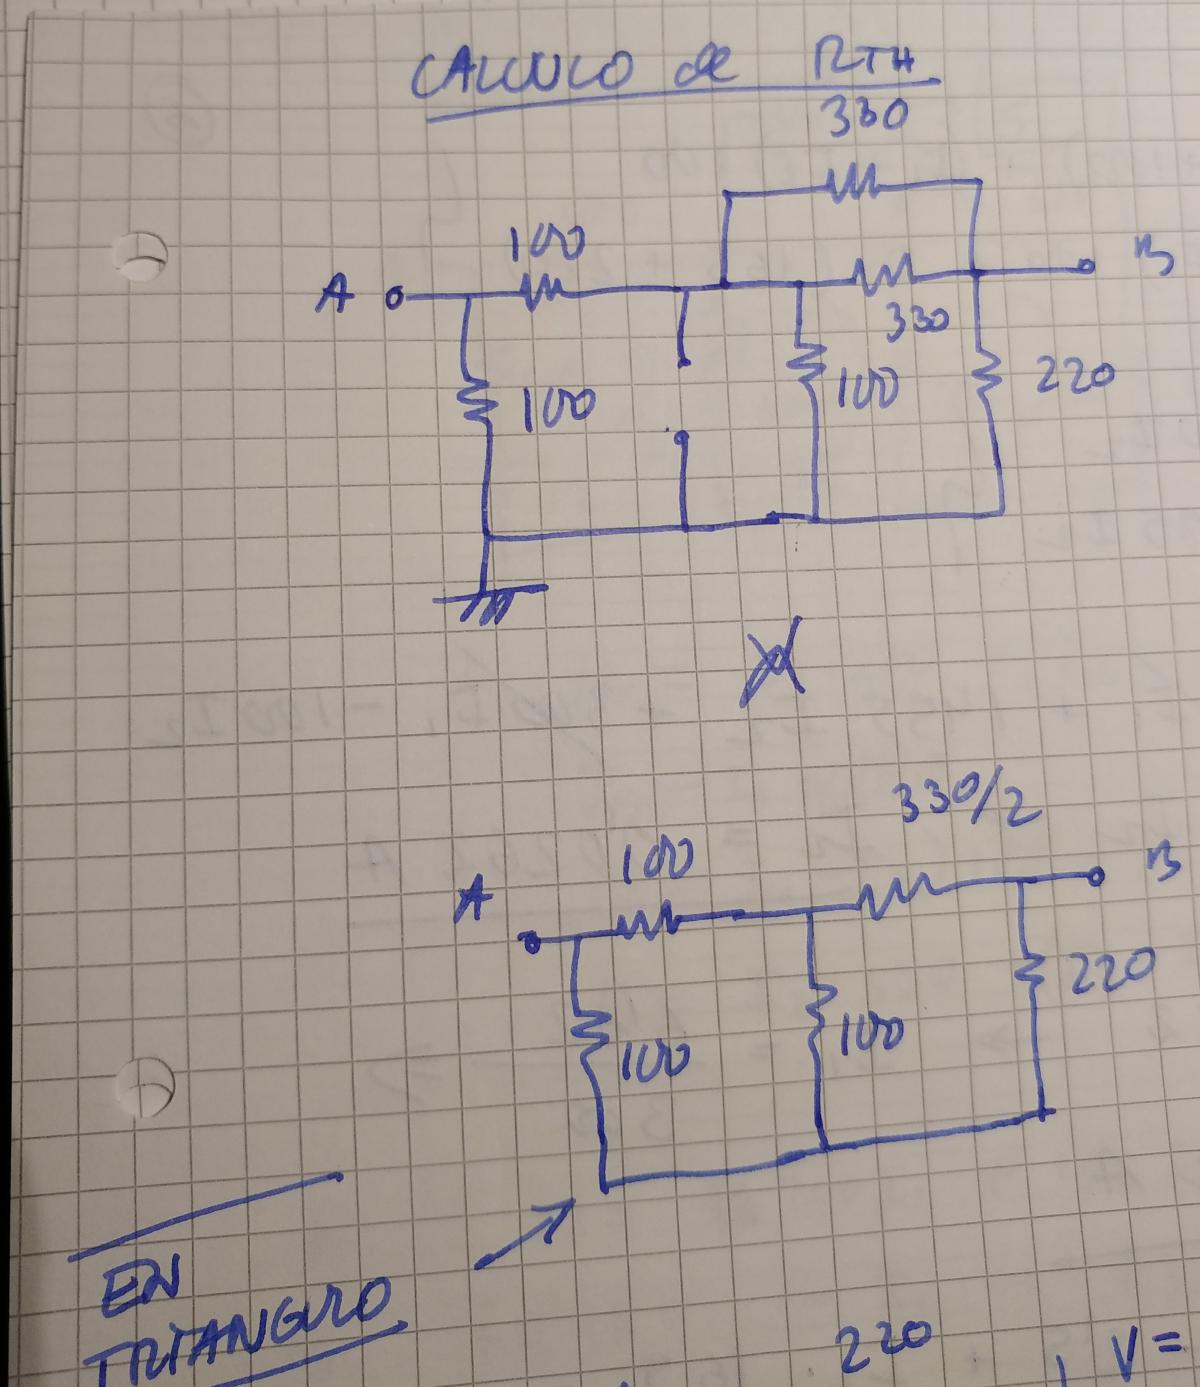 CALCULO de RTH
330
100
A
B
330
100
100
220
330/2
100
A
B
220
100
100
EN
TRIANGULO
220
V=